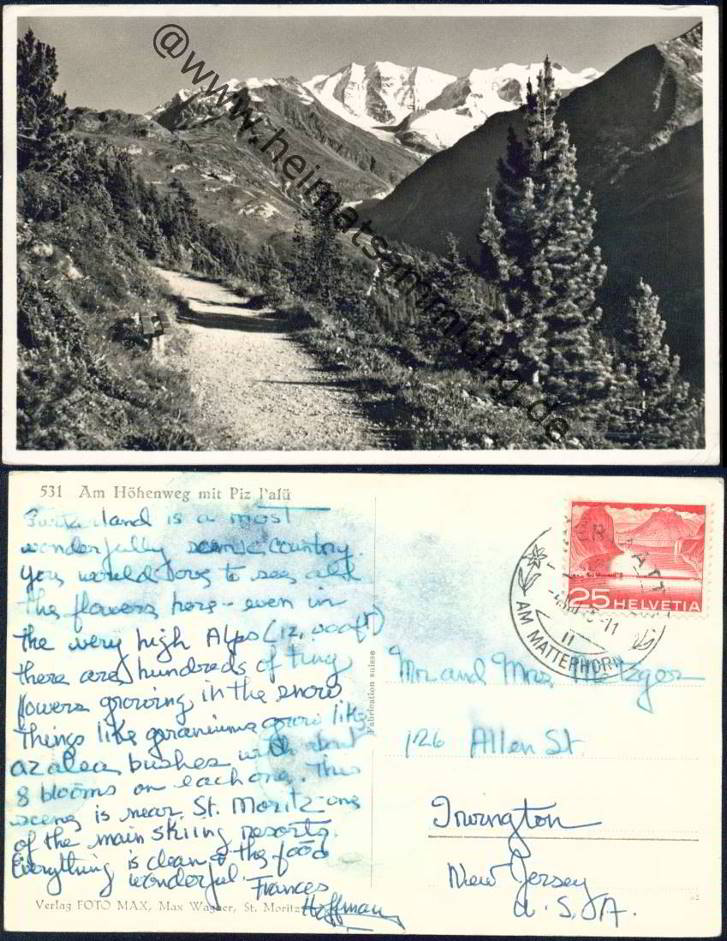 @www.heimatsammlung.de
531 Am Höhenweg mit Piz Palü
Switzerland is a most
wonderfully scenic country.
You would love to see all
the flowers here - even in
the very high Alps (12,000 ft)
there are hundreds of tiny
flowers growing in the snow
Things like geraniums grow like
azalea bushes with about
8 blooms on each one. This
scene is near St. Moritz - one
of the main skiing resorts.
Everything is clean & the food
wonderful. Frances
Hoffman
Verlag FOTO MAX, Max Wagner, St. Moritz
Fabrication suisse
25 HELVETIA
ZERMATT
AM MATTERHORN
Mr. and Mrs. Metzger
126 Allen St.
Irvington
New Jersey
U.S.A.